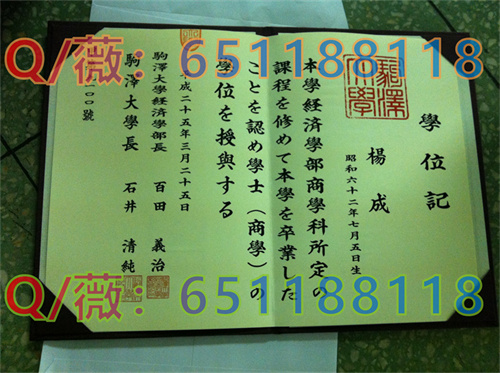 Q/薇: 651188118
學位記
駒澤大學
楊成
昭和六十二年七月五日生
本學経済學部商學科所定の
課程を修めて本學を卒業した
ことを認め學士（商學）の
學位を授與する
平成二十五年三月二十五日
駒澤大學経済學部長 百田 義治
駒澤大學長 石井 清純
一〇〇號
Q/薇: 651188118